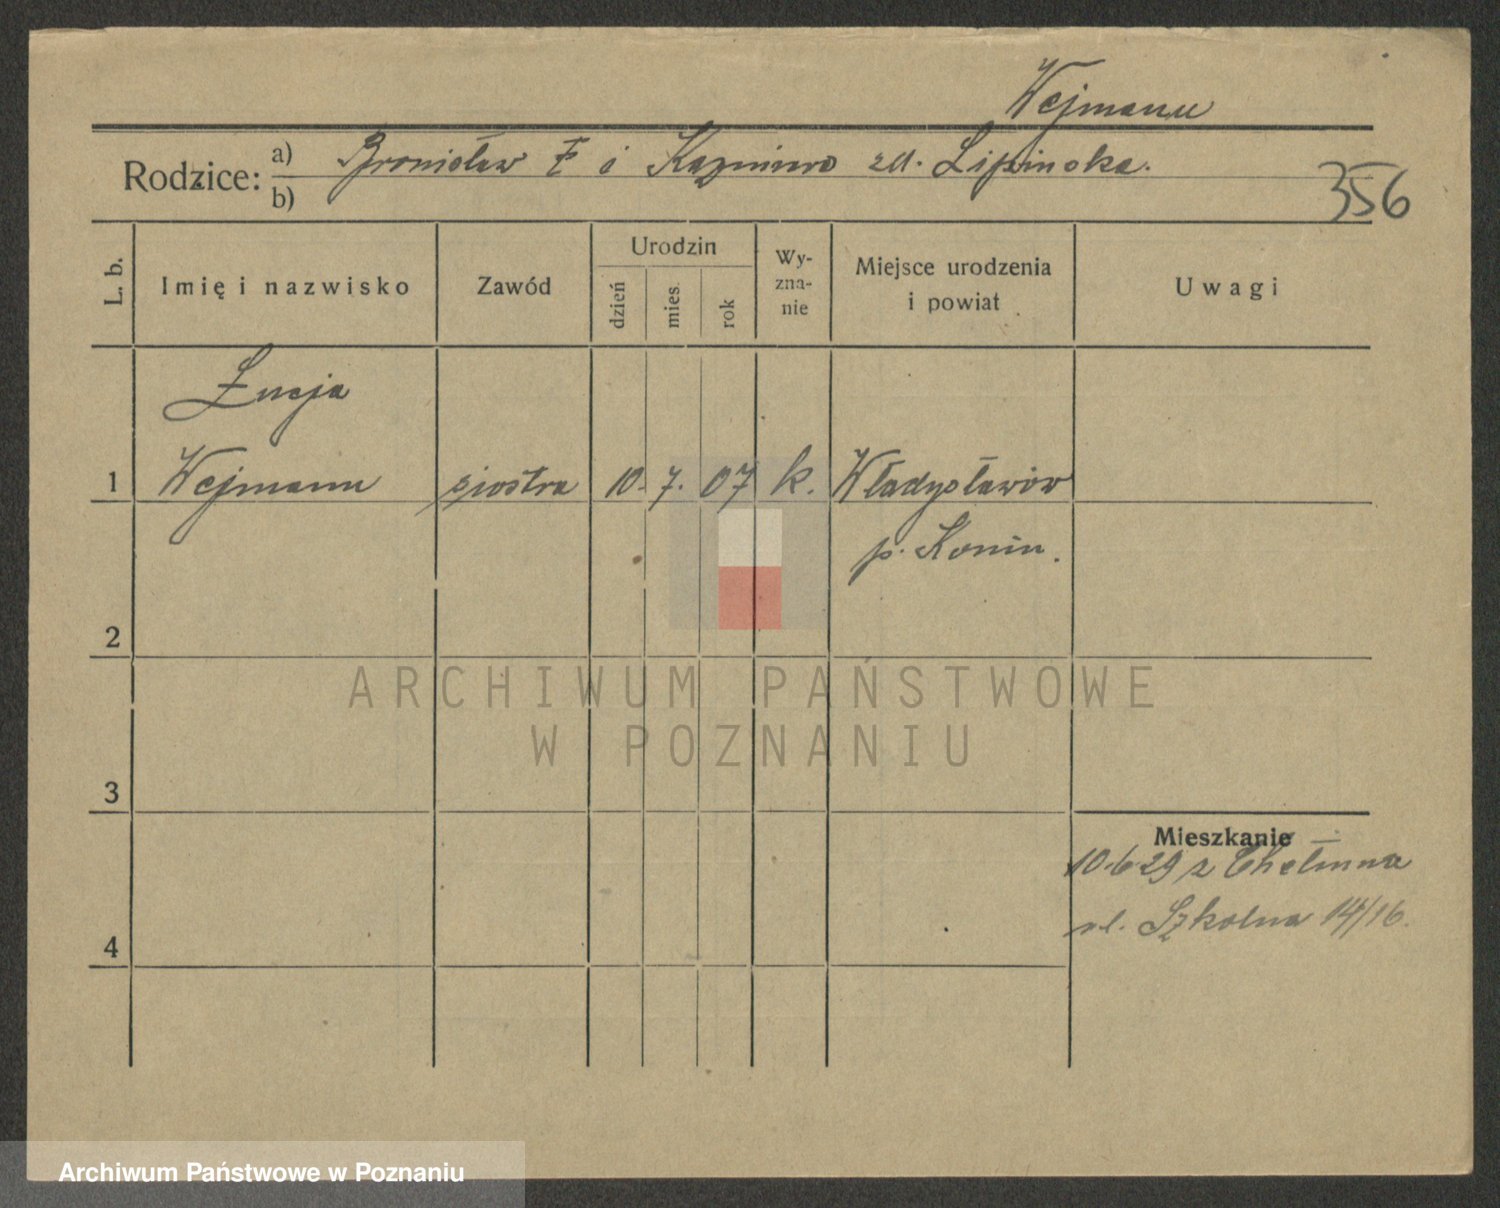 Wejmann
Rodzice: a) Bronisław i zd. Lipinska.
b)
356
L. b. Imię i nazwisko Zawód Urodzin dzień mies. rok Wy-zna-nie Miejsce urodzenia i powiat Uwagi
Łucja
1 Wejmann siostra 10. 7. 07 k. Władysławów
p. Konin.
2
ARCHIWUM PAŃSTWOWE
W POZNANIU
3
Mieszkanie
10.6.29 z Chełmna
ul. Szkolna 14/16.
4
Archiwum Państwowe w Poznaniu